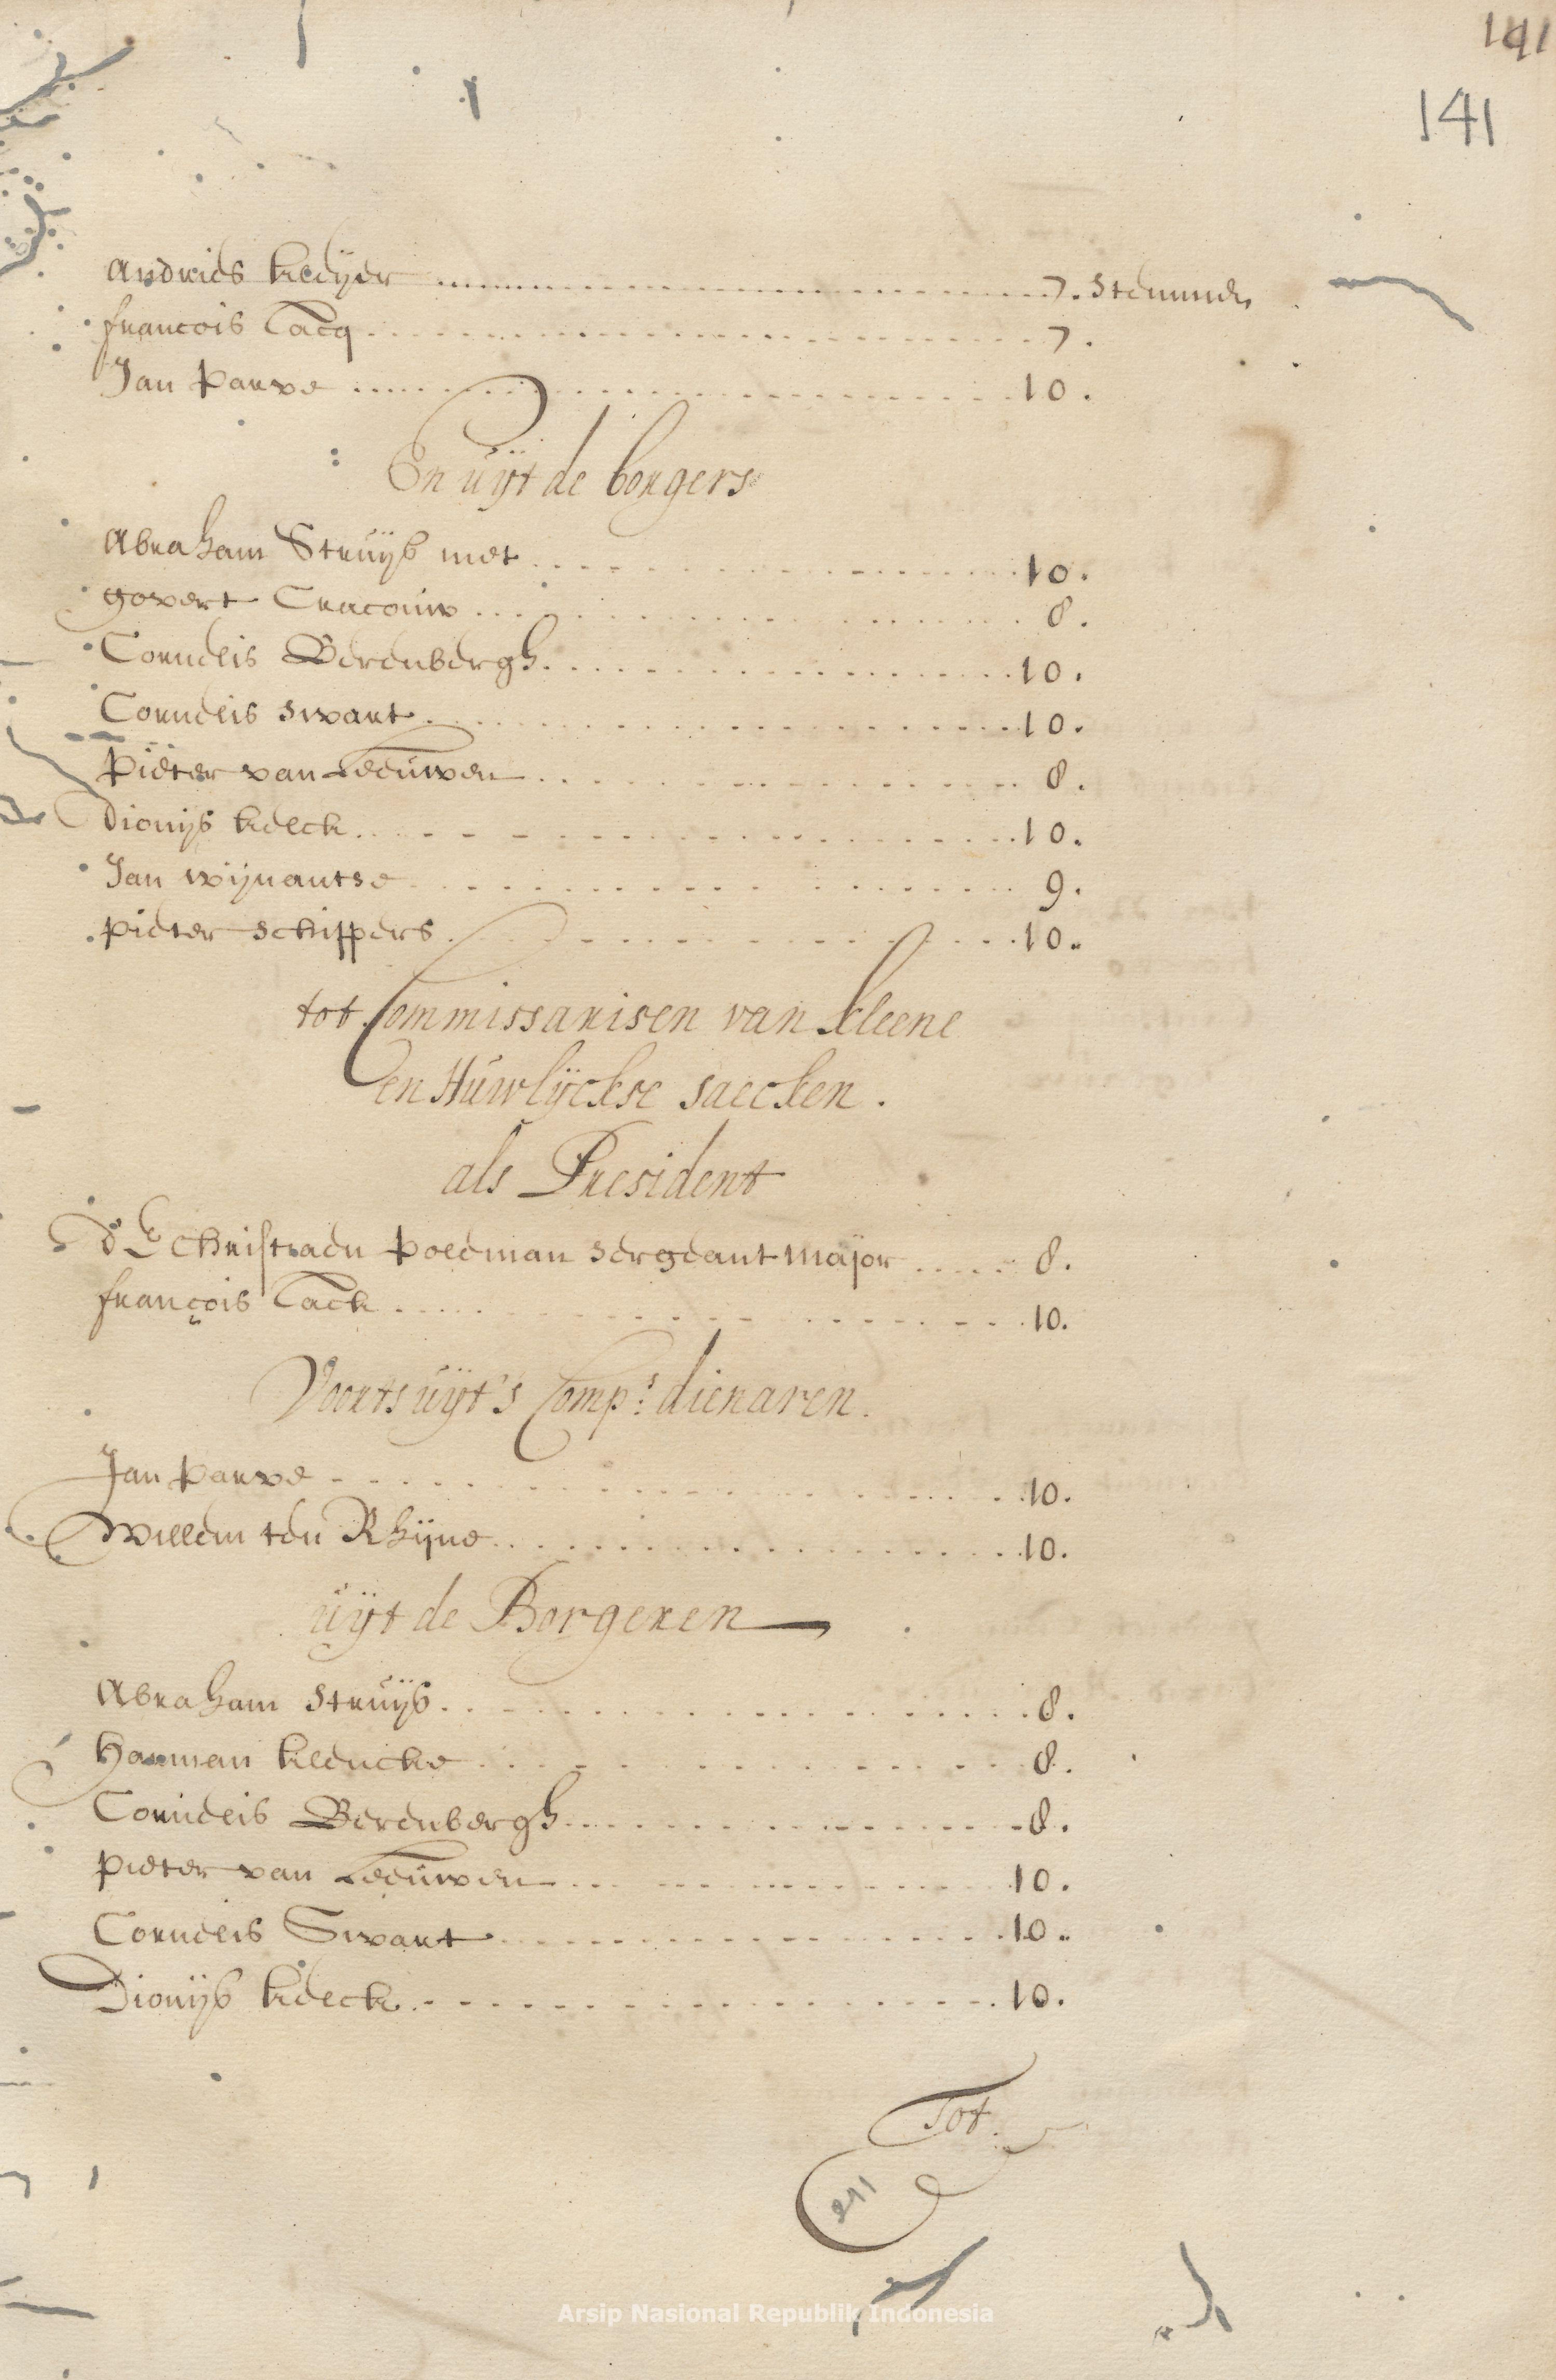 141
141
Andries kleyer 7. stemmen
francois Tacq 7.
Jan Parve 10.
En uijt de borgers
Abraham Struijs met 10.
govert Cracouw 8.
Cornelis Berenbergh 10.
Cornelis swart 10.
Pieter van Leeuwen 8.
Dionijs kelck 10.
Jan wijnantse 9.
Pieter schippers 10.
tot Commissarisen van kleene
en Huwlijckse saecken.
als President
d' E Christiaen Poleman sergeant Major 8.
françois Tack 10.
Voorts uijt 's Comps: dienaren.
Jan Parve 10.
Willem ten Rhijne 10.
uijt de Borgeren
Abraham struijs 8.
Harman klencke 8.
Cornelis Berenbergh 8.
Pieter van Leeuwen 10.
Cornelis Swart 10.
Dionijs kelck 10.
Tot
Arsip Nasional Republik Indonesia